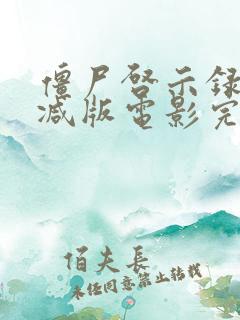 僵尸启示录
减版电影完
佰夫長
未经同意禁止转载